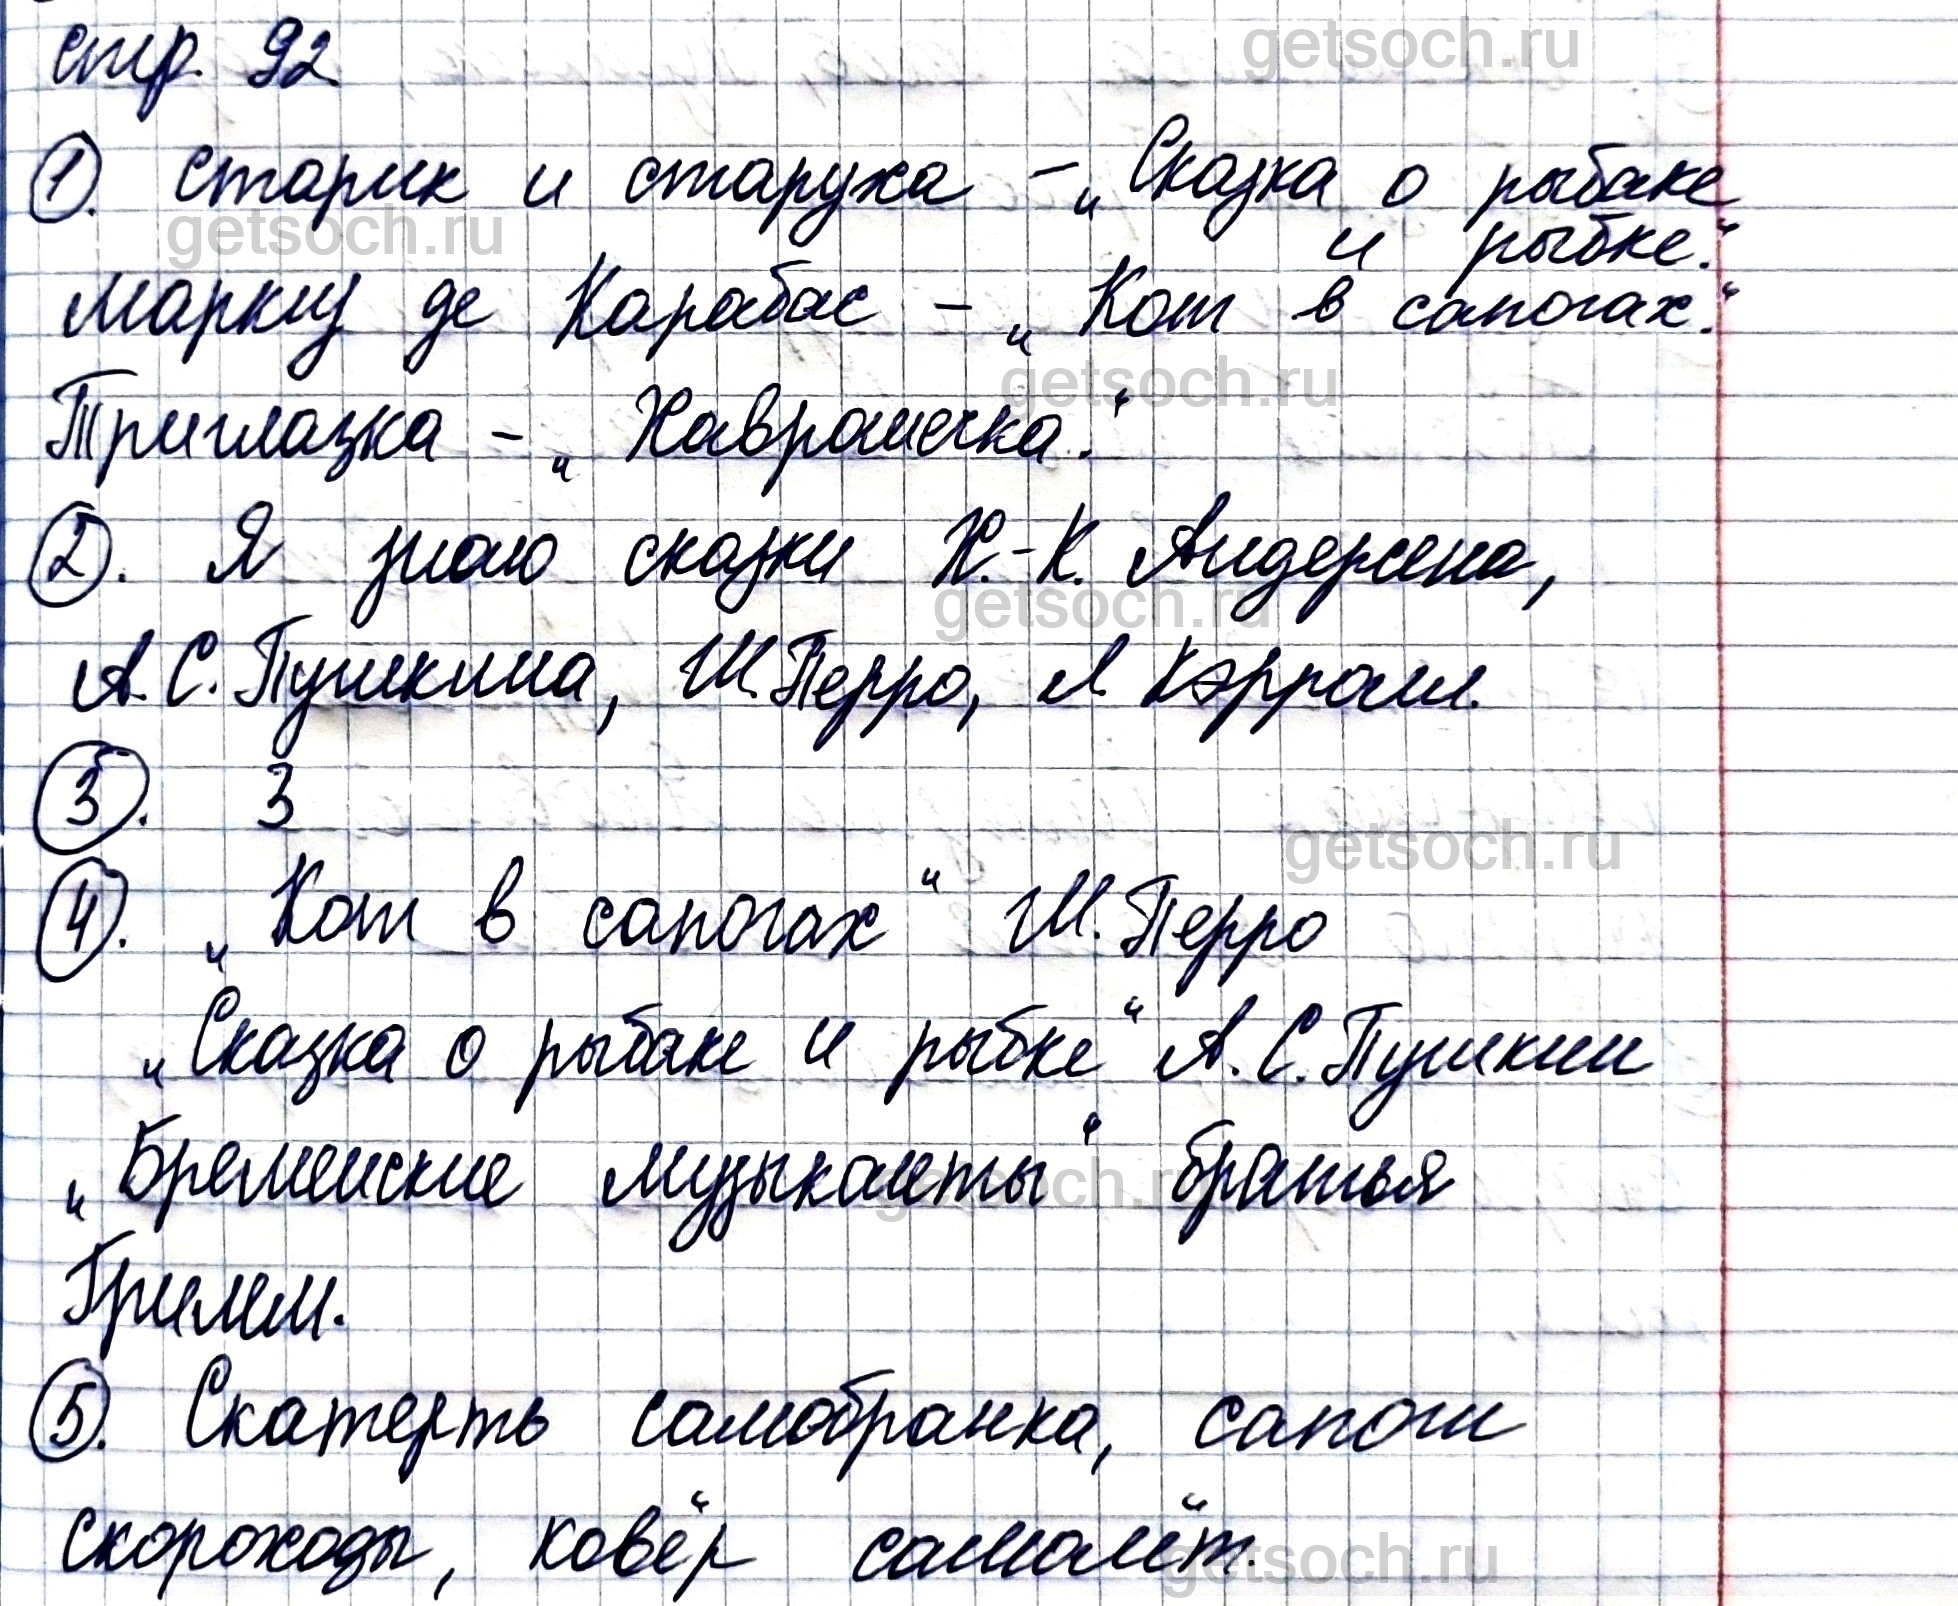 стр. 92
1. старик и старуха – „Сказка о рыбаке
и рыбке."
Маркиз де Карабас – „Кот в сапогах."
Триглазка – „Хаврошечка."
2. Я знаю сказки Х.-К. Андерсена,
А.С. Пушкина, Ш. Перро, Л. Кэрролл.
3. 3
4. „Кот в сапогах" Ш. Перро
„Сказка о рыбаке и рыбке" А. С. Пушкин
„Бременские музыканты" братья
Гримм.
5. Скатерть самобранка, сапоги
скороходы, ковёр самолёт.
getsoch.ru
getsoch.ru
getsoch.ru
getsoch.ru
getsoch.ru
getsoch.ru
getsoch.ru